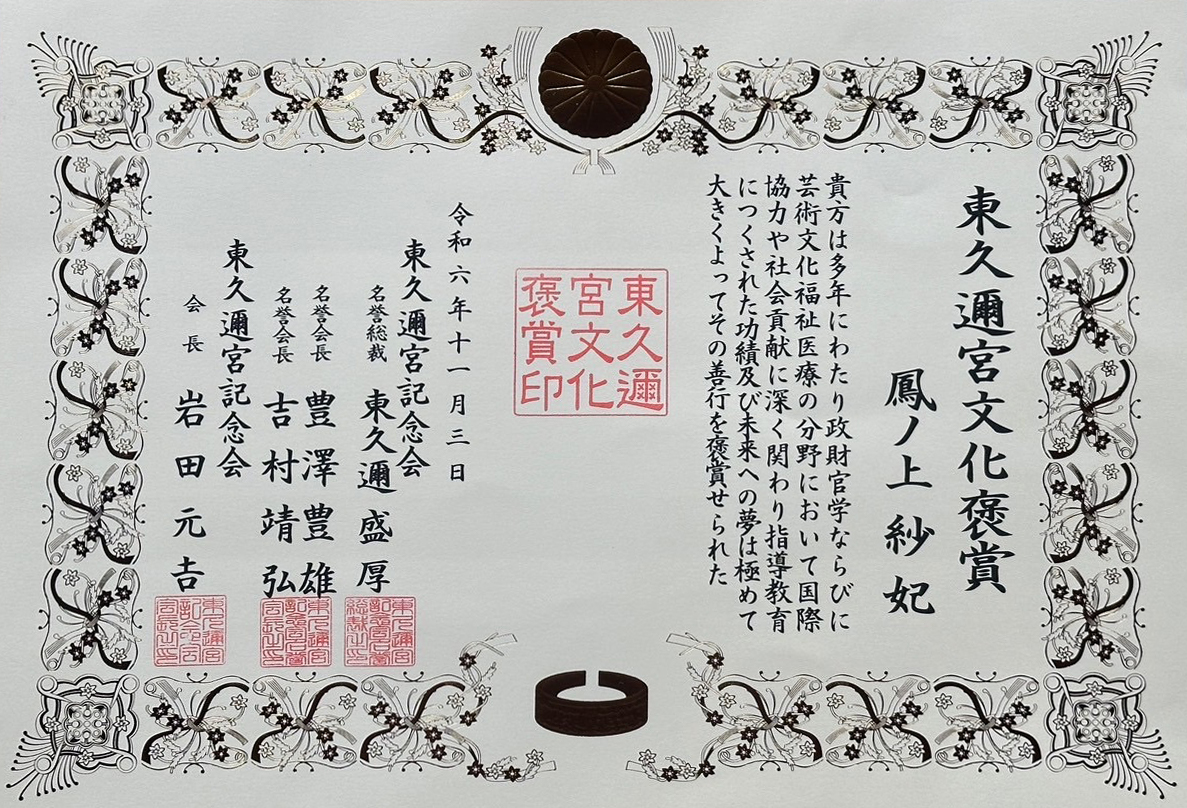 東久邇宮文化褒賞
鳳ノ上紗妃
貴方は多年にわたり政財官学ならびに
芸術文化福祉医療の分野において国際
協力や社会貢献に深く関わり指導教育
につくされた功績及び未来への夢は極めて
大きくよってその善行を褒賞せられた
東久邇
宮文化
褒賞印
令和六年十一月三日
東久邇宮記念会
名誉総裁 東久邇盛厚
名誉会長 豊澤豊雄
名誉会長 吉村靖弘
東久邇宮記念会
会長 岩田元吉